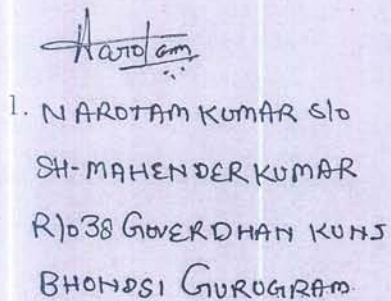 Narotam
1. NAROTAM KUMAR S/o
SH-MAHENDER KUMAR
R/o 38 GOVERDHAN KUNJ
BHONDSI GURUGRAM.